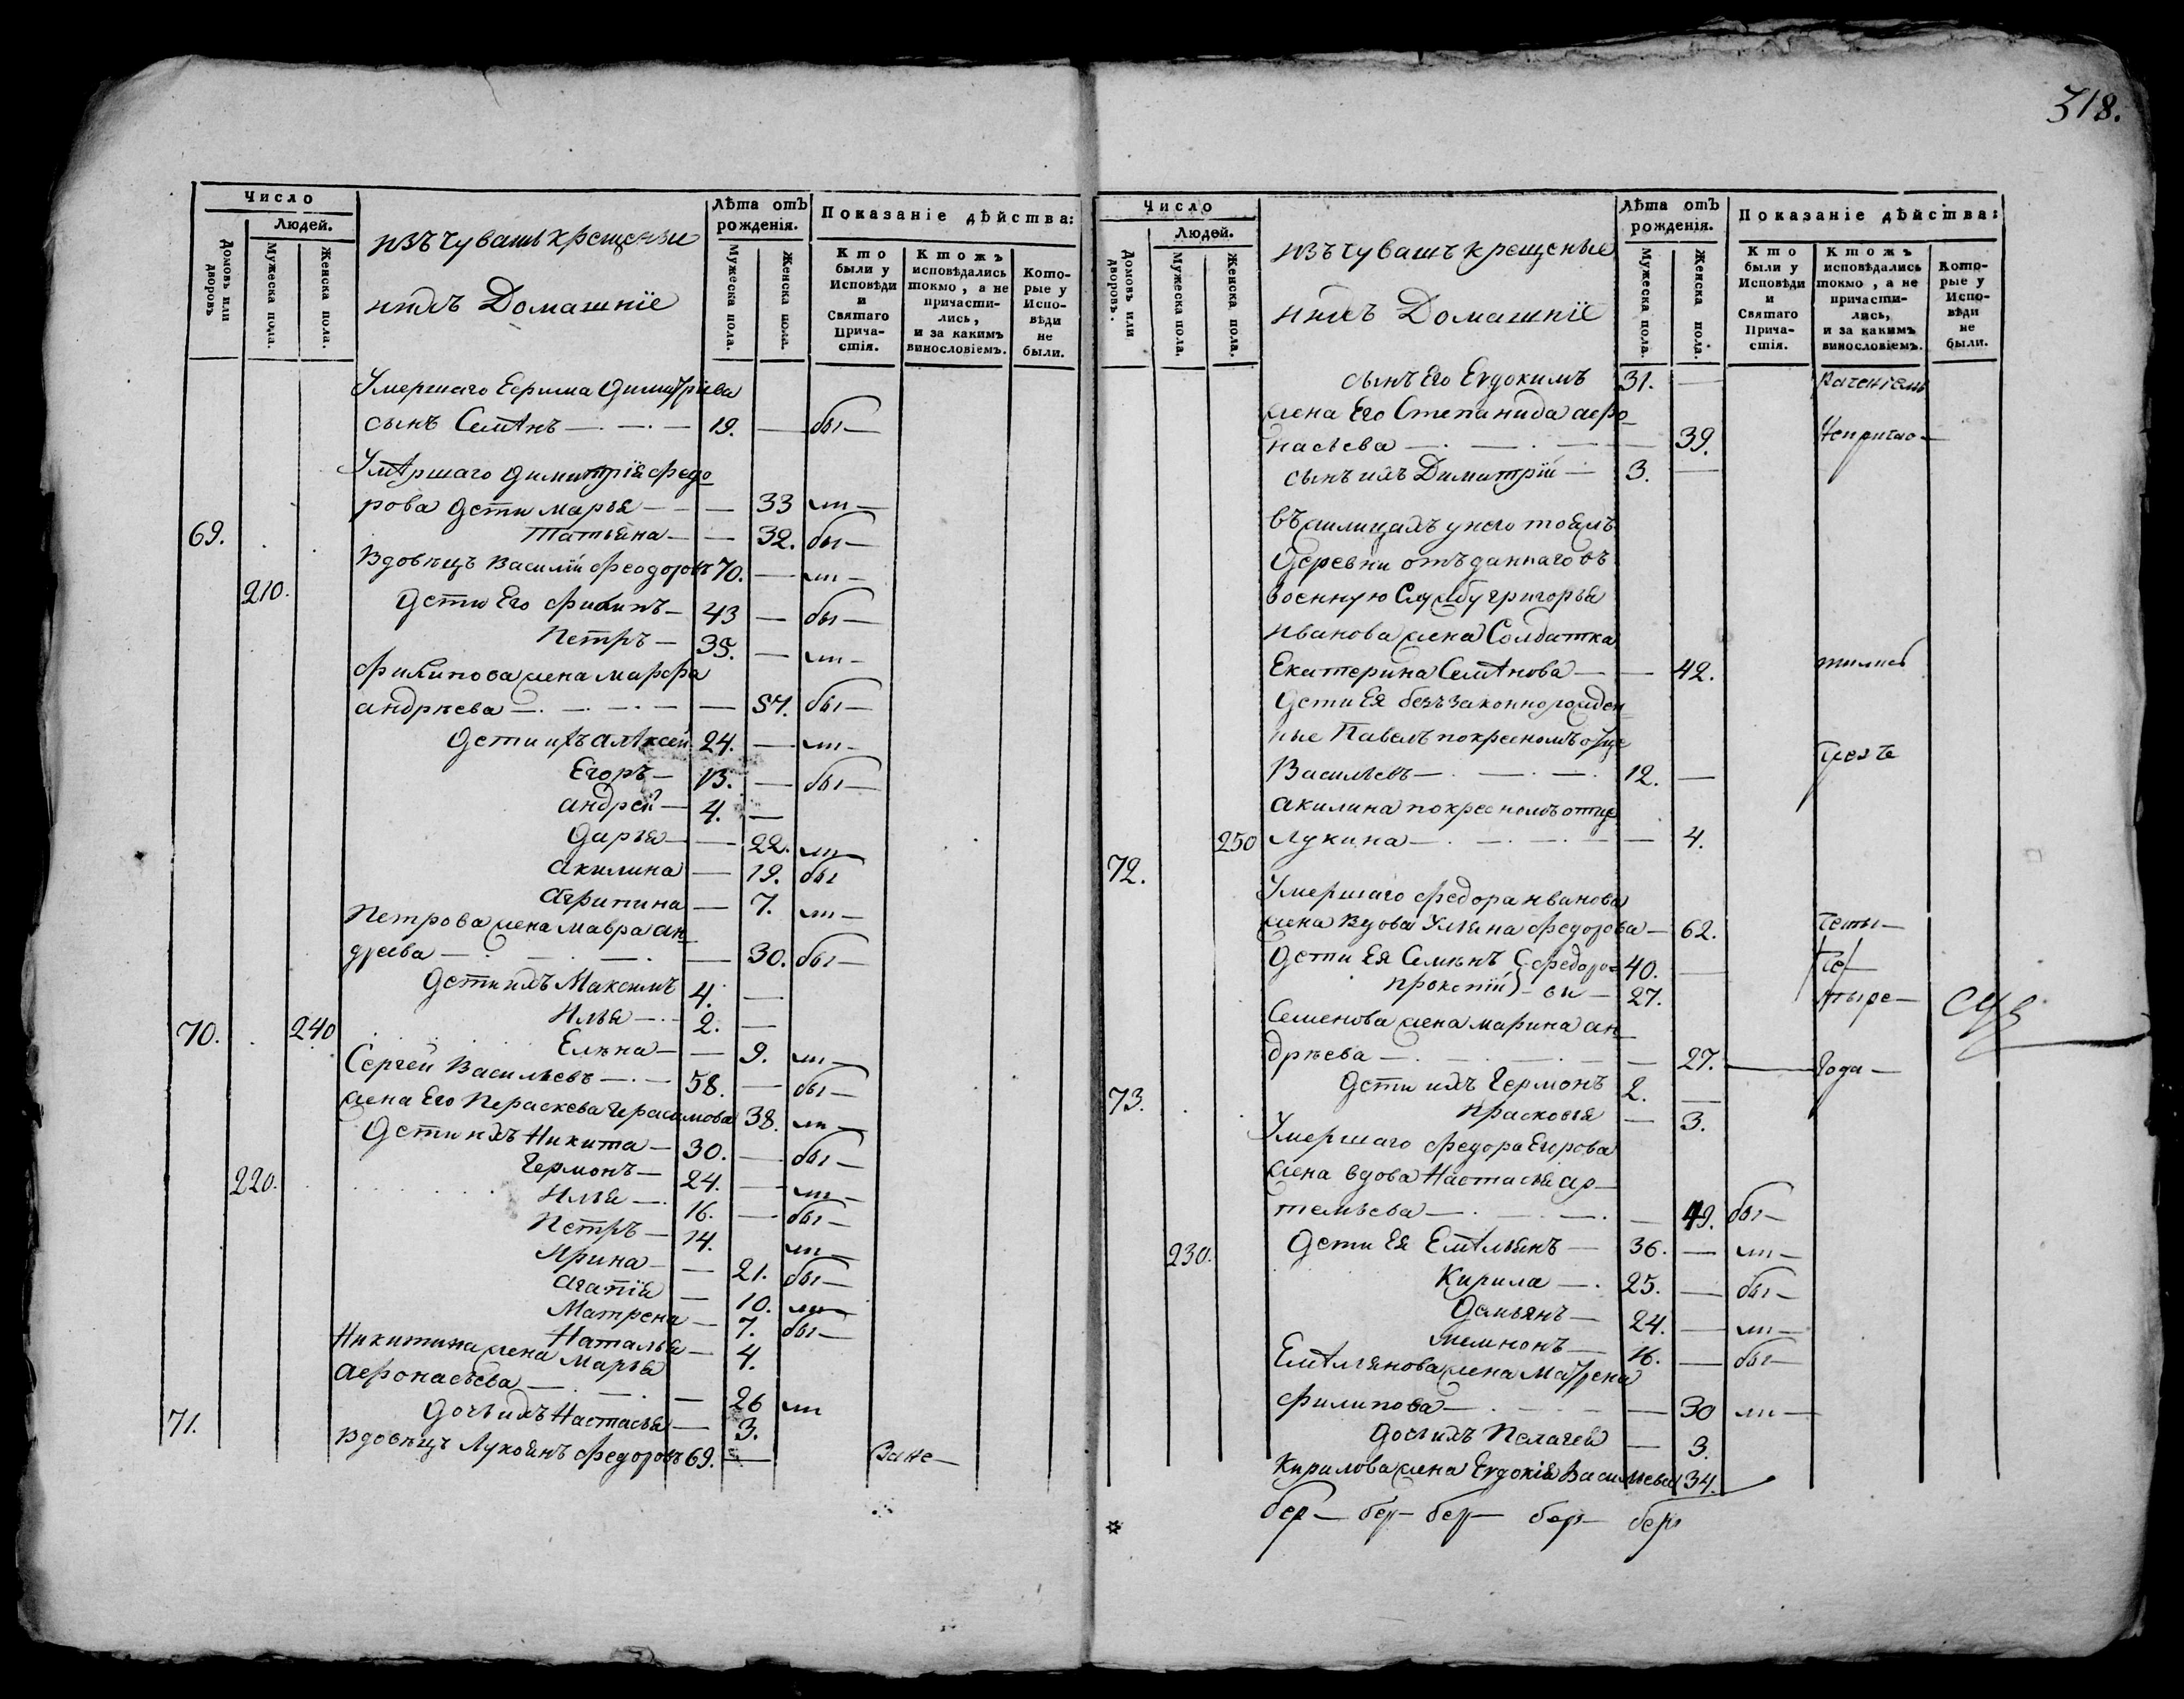 318.
Число
Людей.
Домовъ или дворовъ
Мужеска пола.
Женска пола.
изъ чувашъ крещеные
и ихъ Домашніе
Лѣта отъ рожденія.
Мужеска пола.
Женска пола.
Показаніе дѣйства:
Кто были у Исповѣди и Святаго Прича-стія.
Ктожъ исповѣдались токмо, а не причасти-лись, и за какимъ винословіемъ.
Кото-рые у Испо-вѣди не были.
Умершаго Ефрима Димитріева
сынъ Семѣнъ — 19. — бы—
Умѣршаго Димитрія Ѳедо
рова Дети Марья — — 33 ли—
69. Татьяна — — 32. бы—
Вдовѣцъ Василій Феодоровъ 70. — ли—
210. Дети Его Филипъ — 43 — бы—
Петръ — 35. — ли—
Филипова жена Марфа
андрѣева — — бы—
Дети ихъ Алѣксей 24. — ли—
Егоръ — 13. — бы—
андрей — 4. —
Дарья — — 22. ли—
акилина — 19. бы
агрипина — 7. ли—
Петрова жена Мавра ан
дреева — — 30. бы—
Дети ихъ Максимъ 4. —
Илья — 2. —
70. 240 Елѣна — — 9. ли—
Сергей Васильевъ — 58. — бы—
жена Его Пераскева Герасимова 38. ли—
Дети ихъ Никита — 30. — бы—
Гермонъ — 24. — ли—
220. Илья — 16. — бы—
Петръ — 14. ли—
Ирина — — 21. бы—
агапія — 10. ли—
Матрена — 7. бы—
Наталья — 4.
Никитина жена Марья
афонасьева — — 26 ли
Дочь ихъ Настасья — 3.
71. Вдовѣцъ Лукоянъ Федоровъ 69. — Зане—
Число
Людей.
Домовъ или дворовъ.
Мужеска пола.
Женска пола.
изъ чувашъ крещеные
и ихъ Домашніе
Лѣта отъ рожденія.
Мужеска пола.
Женска пола.
Показаніе дѣйства:
Кто были у Исповѣди и Святаго Прича-стія.
Ктожъ исповѣдались токмо, а не причасти-лись, и за какимъ винословіемъ.
Кото-рые у Испо-вѣди не были.
сынъ Его Евдокимъ 31. —
жена Его Степанида афо
насьева — — 39. Непричас—
сынъ ихъ Димитрій — 3. —
въ жилицахъ у него тоежъ
Деревни отъданнаго въ
военную Службу григорья
иванова жена Солдатка
Екатерина Семѣнова — — 42. тились
Дети Ея безъзаконнорожден
ные Павелъ по кресномъ отце
Васильевъ — 12. — чрезъ
акилина по кресномъ отце
250 Лукина — — 4.
72. Умершаго Федора иванова
жена Вдова Ульяна Федорова — 62. Четы—
Дети Ея Семѣнъ Федоро= 40. —
прокопій вы — 27. тыре—
Семенова жена марина ан
дрѣева — — 27. — Года—
Дети ихъ Гермонъ 2. —
73. прасковья — 3.
Умершаго Федора Егорова
жена вдова Настасья ар
темьева — — 49. бы—
230. Дети Ея Емѣльянъ — 36. — ли—
Кирила — 25. — бы—
Демьянъ — 24. — ли—
— 16. — бы—
Емѣльянова жена Матрена
филипова — — 30 ли—
Дочь ихъ Пелагея — 3.
Кирилова жена Евдокія Васильева 34.